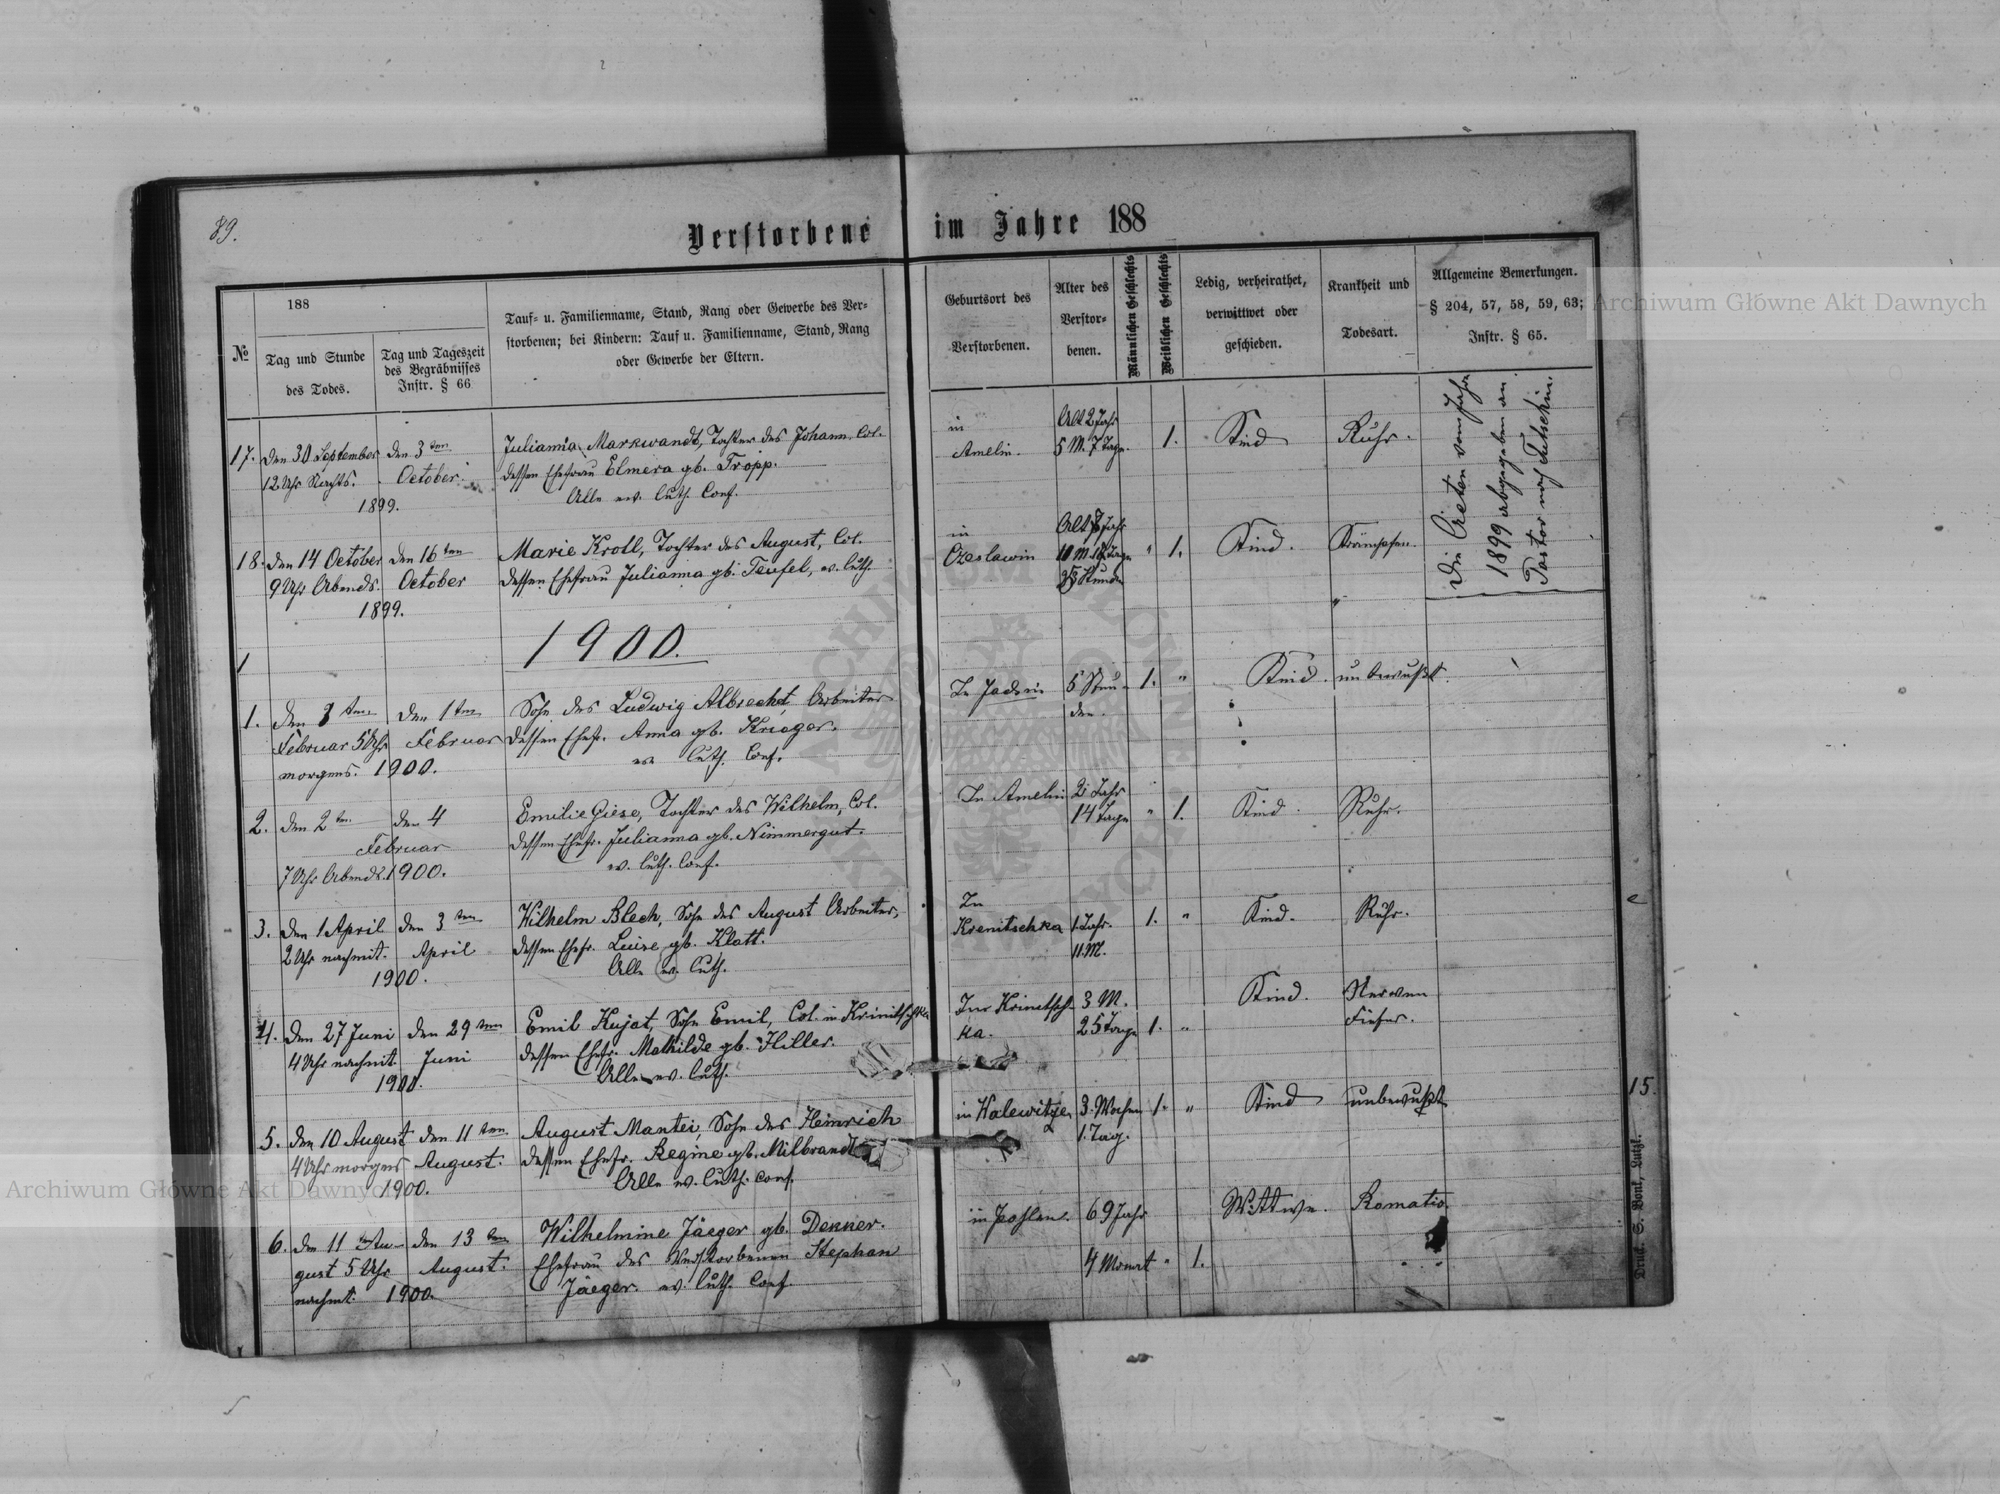 89.
Verstorbene im Jahre 188
№
188
Tag und Stunde
des Todes.
Tag und Tageszeit
des Begräbnisses
Instr. § 66
Tauf- u. Familienname, Stand, Rang oder Gewerbe des Ver-
storbenen; bei Kindern: Tauf u. Familienname, Stand, Rang
oder Gewerbe der Eltern.
Geburtsort des
Verstorbenen.
Alter des
Verstor-
benen.
Männlichen Geschlechts
Weiblichen Geschlechts
Ledig, verheirathet,
verwittwet oder
geschieden.
Krankheit und
Todesart.
Allgemeine Bemerkungen.
§ 204, 57, 58, 59, 63;
Instr. § 65.
17. Den 30 September
12 Uhr Nachts.
den 3ten
October.
1899.
Julianna Markwandt, Tochter des Johann Col.
dessen Ehefrau Elmera gb. Tropp.
Alle ev. luth. Conf.
in
Amelin.
Alt 2 Jahr
5 M. 7 Tage.
1.
Kind
Ruhr.
Die Acten vom Jahre
1899 abgegeben an
Pastor nach Tutschin.
18. Den 14 October
9 Uhr Abends.
den 16ten
October
1899.
Marie Kroll, Tochter des August, Col.
dessen Ehefrau Julianna gb. Teufel, ev. luth.
in
Czeslawin
Alt Jahr
Stunde
" 1.
Kind.
Krämpfen.
1
1900.
1. Den 1ten
Februar 5 Uhr
morgens.
den 1ten
Februar
1900.
Sohn des Ludwig Albrecht, Arbeiter
dessen Ehefr. Anna gb. Krieger.
ev. luth. Conf.
In Jadwin
5 Stun-
den.
1. "
Kind.
unbewußt.
2. den 2ten
den 4
Februar
7 Uhr Abends. 1900.
Emilie Giese, Tochter des Wilhelm, Col.
dessen Ehefr. Julianna gb. Nimmergut.
ev. luth. Conf.
In Amelin
2 Jahr
14 Tage
" 1.
Kind.
Ruhr.
3. Den 1 April
2 Uhr nachmit.
den 3ten
April
1900.
Wilhelm Blech, Sohn des August Arbeiter,
dessen Ehefr. Luise gb. Klatt.
Alle ev. luth.
In
Krenitschka
1 Jahr.
11. M.
1. "
Kind.
Ruhr.
4. Den 27 Juni
4 Uhr nachmit.
den 29ten
Juni
1900.
Emil Kujat, Sohn Emil, Col. in Krinitschka
dessen Ehefr. Mathilde gb. Hiller.
Alle ev. luth.
Krinetsch-
ka.
3 M.
25 Tage
1. "
Kind.
Nerven
Fieber.
5. Den 10 August
4 Uhr morgens
den 11ten
August.
1900.
August Mantei, Sohn des Heinrich
dessen Ehefr. Regine gb. Milbrandt
Alle ev. luth. Conf.
in Walewitze
3. Wochen
1. Tag.
1. "
Kind
unbewußt
15.
6. Den 11ten Au-
gust 5 Uhr
nachmt.
den 13ten
August.
1900.
Wilhelmine Jäeger gb. Denner.
Ehefrau des Verstorbenen Stephan
Jäeger. ev. luth. Conf.
in Pohlen.
69 Jahr
4 Monat
" 1.
Wittwe.
Romatis.
Druck S. Bonk, Lutzk.
Archiwum Główne Akt Dawnych
Archiwum Główne Akt Dawnych